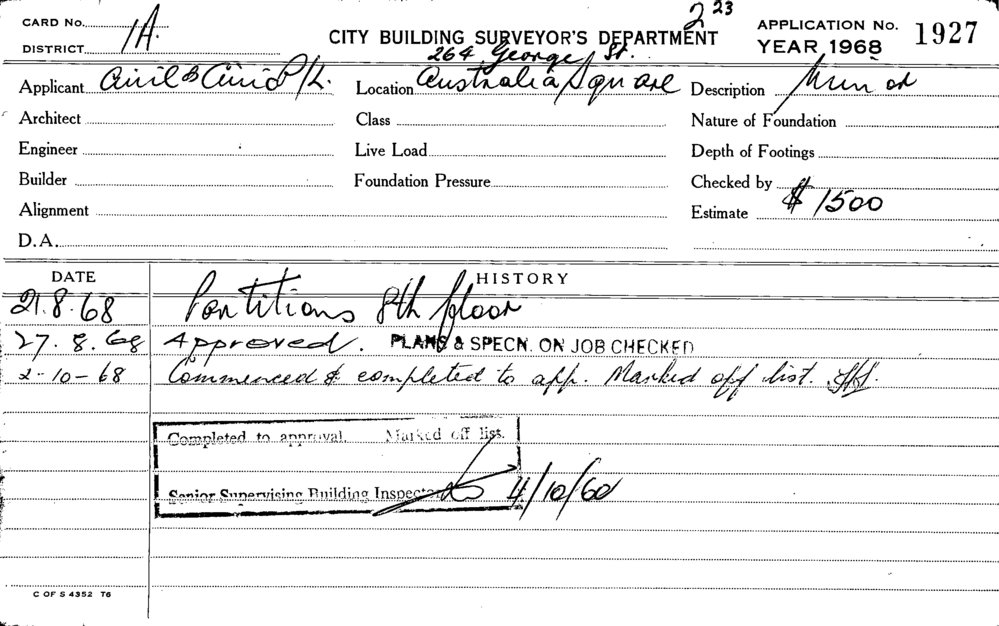 2 23
CARD No.
DISTRICT 1A.
CITY BUILDING SURVEYOR'S DEPARTMENT
APPLICATION No. 1927
YEAR 1968
264 George St.
Applicant Civil & Civic P/L. Location Australia Square Description
Architect Class Nature of Foundation
Engineer Live Load Depth of Footings
Builder Foundation Pressure Checked by
Alignment Estimate $ 1500
D.A.
DATE HISTORY
21.8.68 Partitions 8th floor
27.8.68 Approved. PLANS & SPECN. ON JOB CHECKED
2-10-68 Commenced & completed to app. Marked off list.
Completed to approval. Marked off list.
Senior Supervising Building Inspector 4/10/60
C OF S 4352 T6